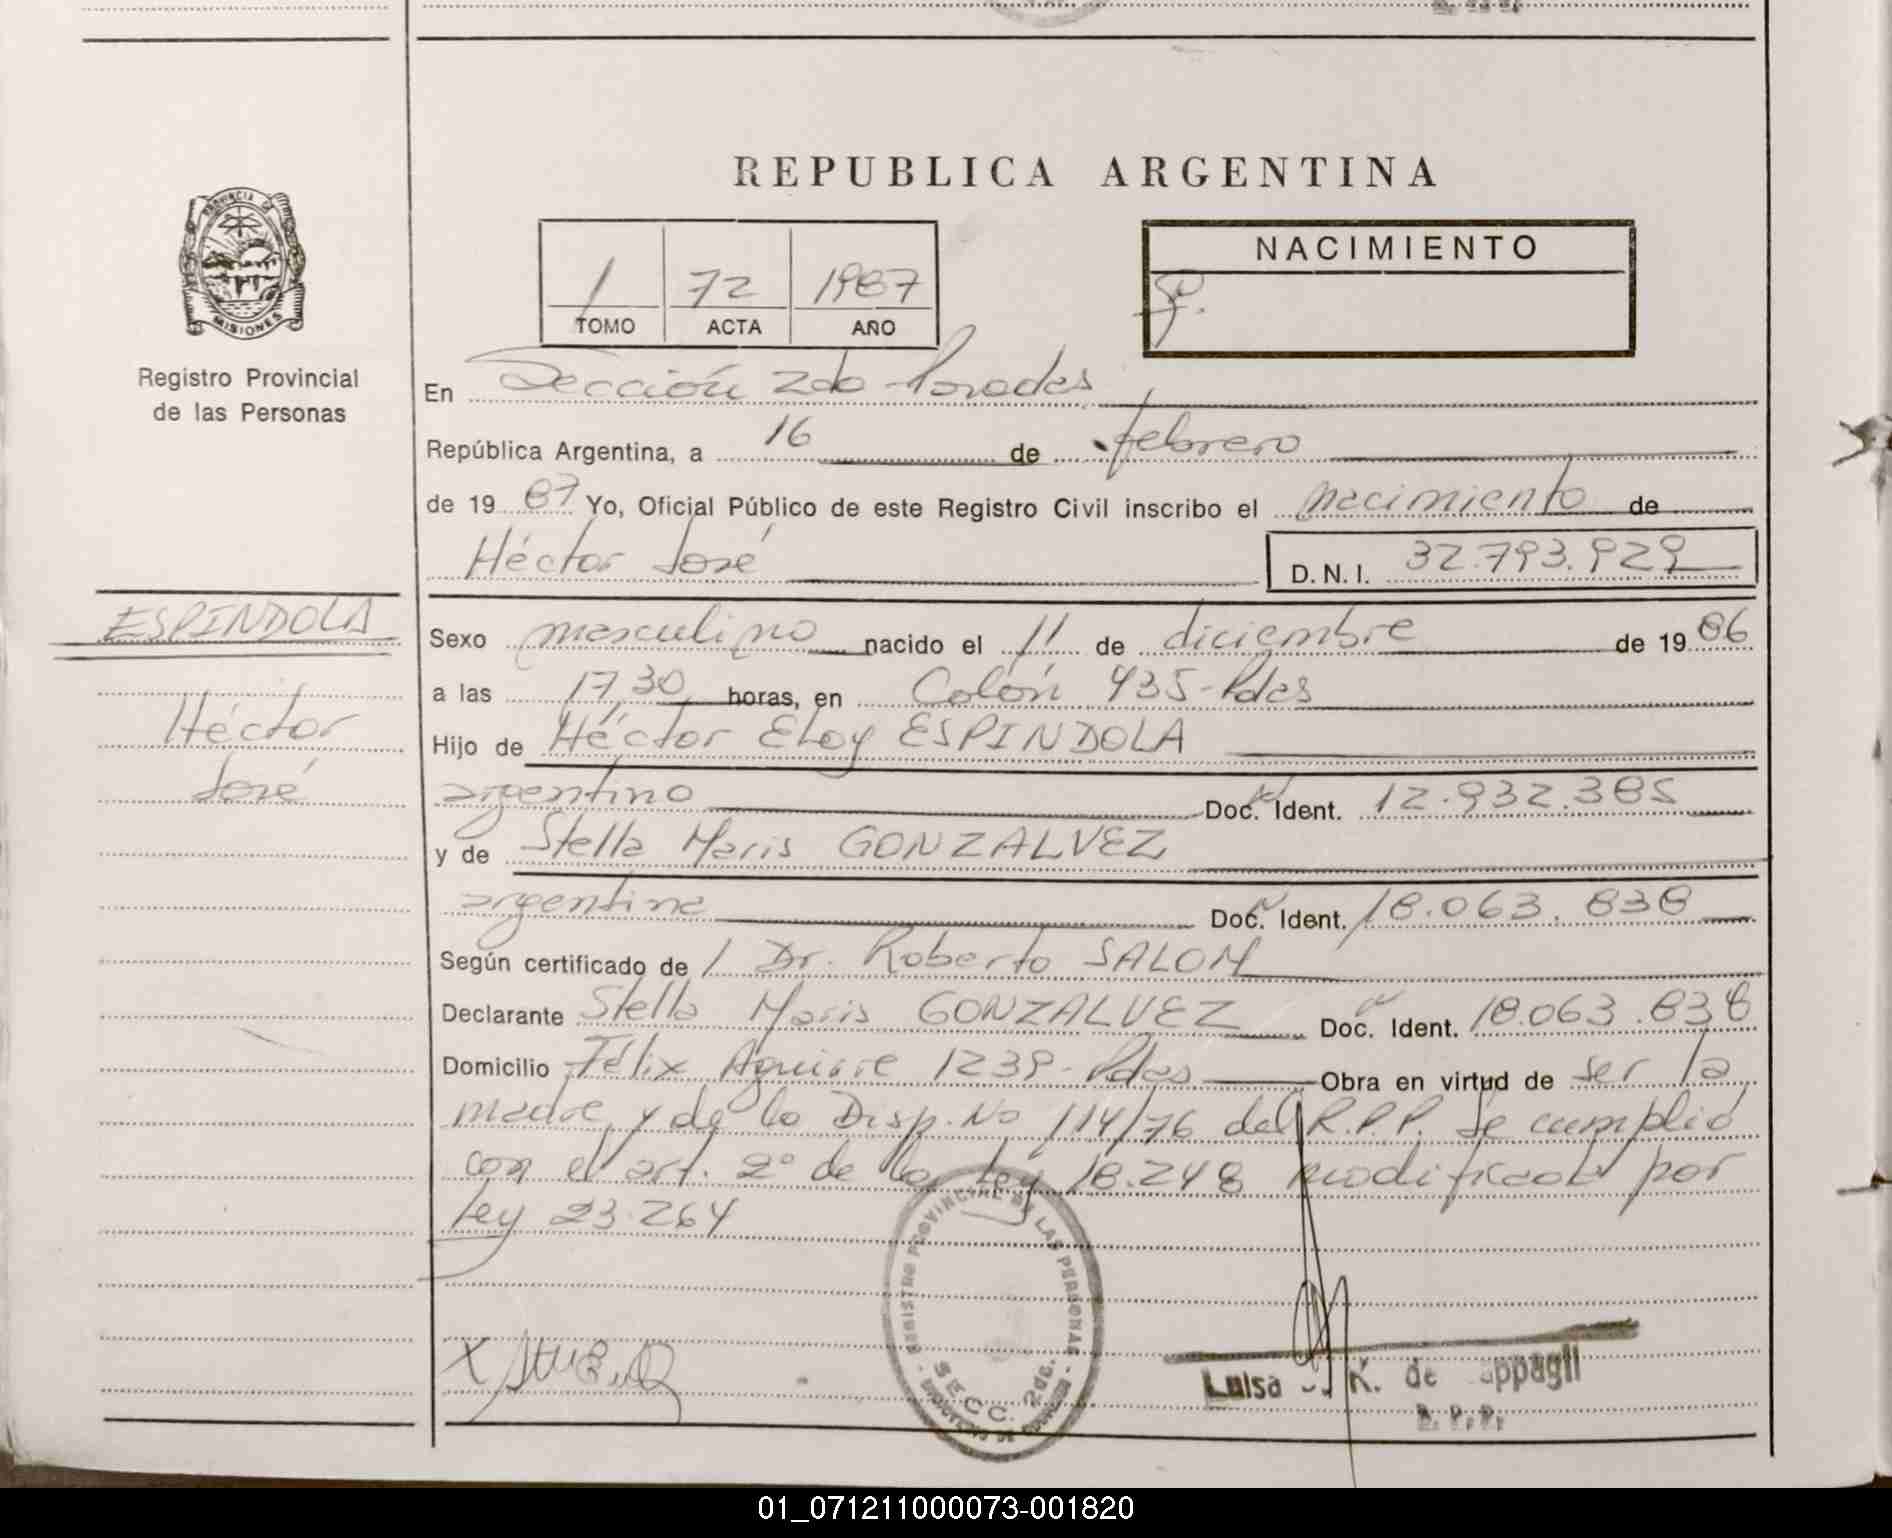 REPUBLICA ARGENTINA
PROVINCIA DE
MISIONES
Registro Provincial
de las Personas
1 72 1987
TOMO ACTA AÑO
NACIMIENTO
En Sección 2da Posadas
República Argentina, a 16 de febrero
de 19 87 Yo, Oficial Público de este Registro Civil inscribo el nacimiento de
Héctor José D.N.I. 32.793.929
ESPINDOLA
Héctor
José
Sexo masculino nacido el 11 de diciembre de 19 86
a las 17,30 horas, en Colón 435-Pdas
Hijo de Héctor Eloy ESPINDOLA
argentino Doc. Ident. 12.932.385
y de Stella Maris GONZALVEZ
argentina Doc. Ident. 18.063.838
Según certificado de / Dr. Roberto SALOM
Declarante Stella Maris GONZALVEZ Doc. Ident. 18.063.838
Domicilio Félix Aguirre 1239-Pdas Obra en virtud de ser la
madre y de la Disp. No 114/76 del R.P.P. Se cumplió
con el art. 2° de la Ley 18.248 modificada por
Ley 23.264
REGISTRO PROVINCIAL DE LAS PERSONAS
SECC. 2da.
X
Luisa K. de
R. P. P.
01_071211000073-001820